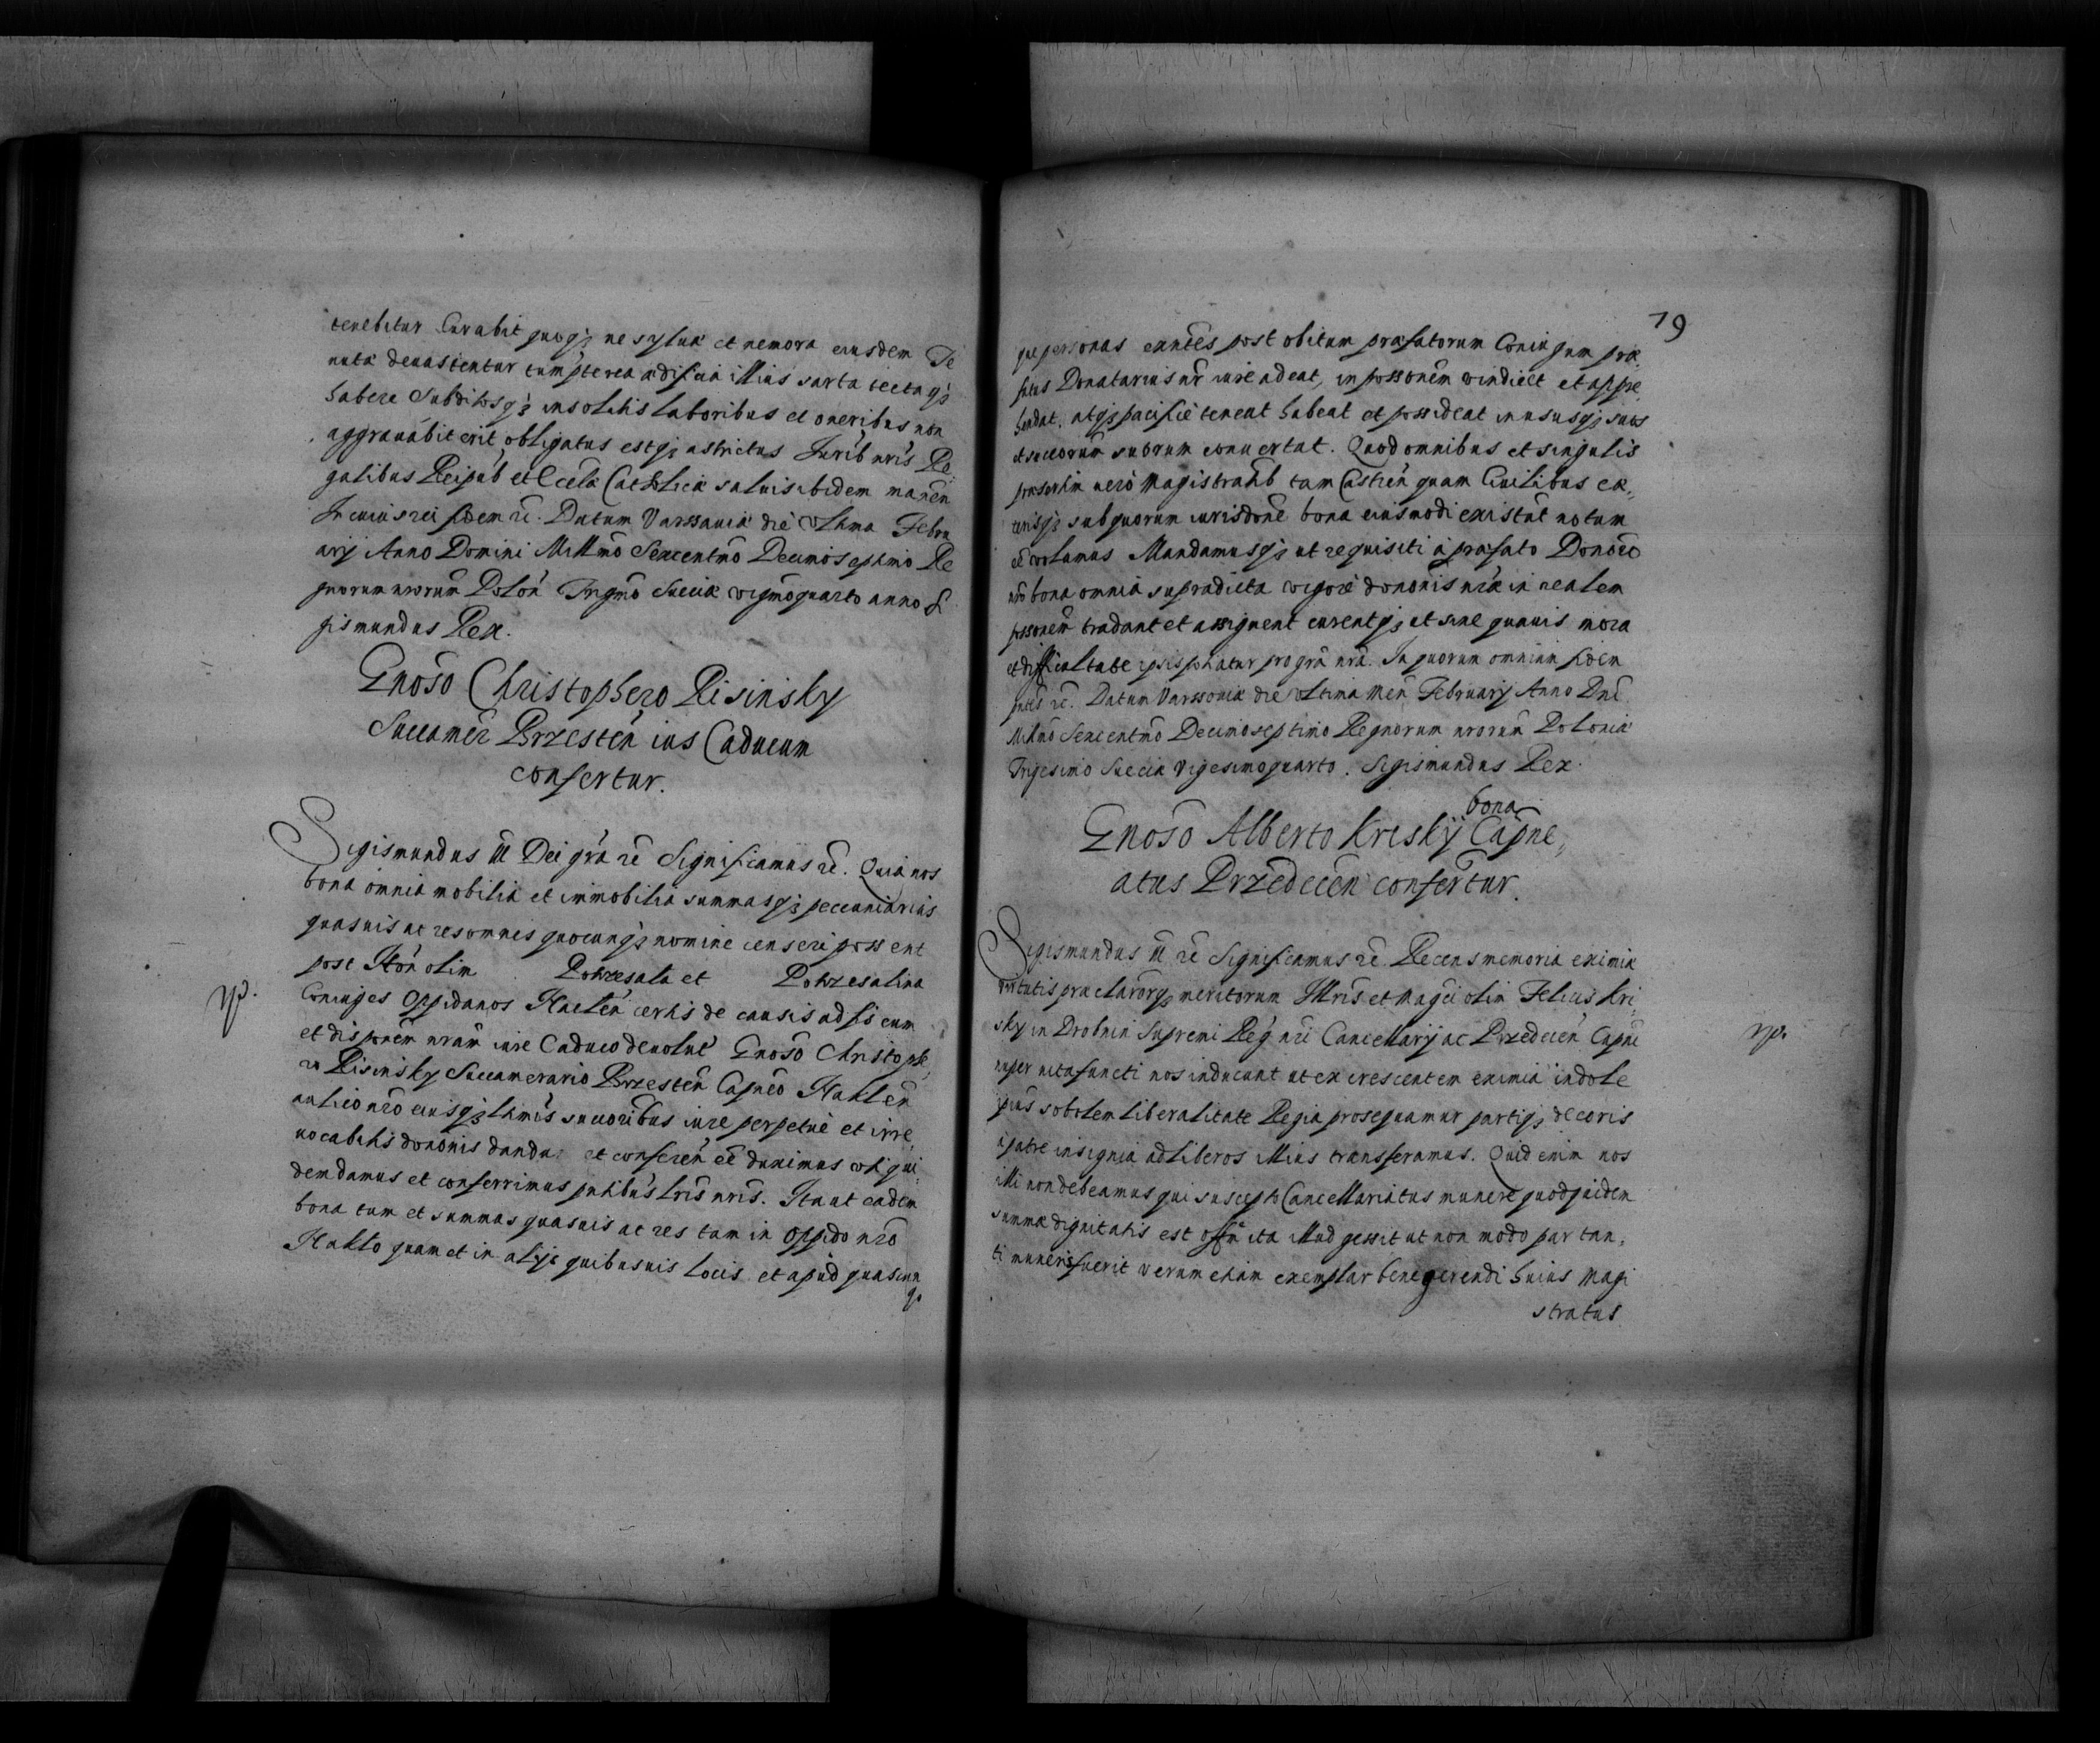 tenebitur Curabit quoq́; ne syluæ et nemora eiusdem Te
nutæ deuastentur tum pterea ædificia illius sarta tecta q́;
habere Subditosq́; insolitis laboribus et oneribus non
aggrauabit erit obligatus estq́; astrictus Jurib nris Re
galibus Reipub et Eccłæ Catholicæ saluis ibidem manen
In cuius rei fidem rē. Datum Varssauiæ die vltima Febru
arij Anno Domini Millmo Sexcentmo Decimoseptimo Re
gnorum nrorum Polon Trigmo Sueciæ vigmoquarto anno Si
gismundus Rex.
Gnoso Christophero Risinsky
Succamer Brzesten ius Caducum
confertur.
Sigismundus III Dei gra rē Significamus rē. Quia nos
bona omnia mobilia et immobilia summasq́; pecuniarias
quasuis ac res omnes quocunq́; nomine censeri possent
post olim Pokrzesala et Pokrzesalina
Coniuges Oppidanos certis de causis ad fiscum
et disponem nram iure Caduco deuolut Gnoso Christophe
ro Risinsky Succamerario Brzesten Capneo
aulico nro eiusq́; ltimis succoribus iure perpetuè et irre
uocabilis dononis et conferen eē duximus vti qui
dem damus et conferrimus pntibus lris nris. Ita ut eadem
bona tum et summas quasuis ac res tam in Oppido nro
quam et in alijs quibusuis locis et apud quascun
q́;
np.
79
que personas exntes post obitum præfatorum Coniugum præ
fatus Donatarius nr iure adeat, in possonem vindicet et appre
hendat, atq́; pacificè teneat habeat et possideat in ususq́; suos
et succorum suorum conuertat. Quod omnibus et singulis
præsertim uerò Magistratib tam Castren quam Ciuilibus cæ,
terisq́; sub quorum iurisdone bona eiusmodi existut notum
eē volumus Mandamusq́; ut requisiti a præfato Donorio
nro bona omnia supradicta vigore dononis nræ in realem
possonem tradant et assignent curentq́; et sine quauis mora
et difficultate ipsis pro gra nra. In quorum omnium fidem
pntes rē. Datum Varssouiæ die vltima Men February Anno Dni
Millmo Sexcentmo Decimoseptimo Regnorum nrorum Poloniæ
Trigesimo Sueciæ Vigesimoquarto. Sigismundus Rex.
Gnoso Alberto Krisky bona Capne,
atus Przedecen confertur.
Sigismundus III rē Significamus rē Recens memoria eximiæ
virtutis præclarorq́; meritorum Illris et Magci olim Felicis Kri
sky in Drobnin Supremi Reg nri Cancellarij ac Przedecen Capnei
nuper uita functi nos inducunt ut excrescentem eximia indole
ipius sobolem liberalitate Regia prosequamur partiq́; decoris
a patre insignia ad liberos illius transferamus. Quid enim nos
illi non debeamus qui suscepto Cancellariatus munere quod quidem
summæ dignitatis est ita illud gessit ut non modo par tan,
ti muneris fuerit verum etiam exemplar bene gerendi huius Magi
stratus
np.